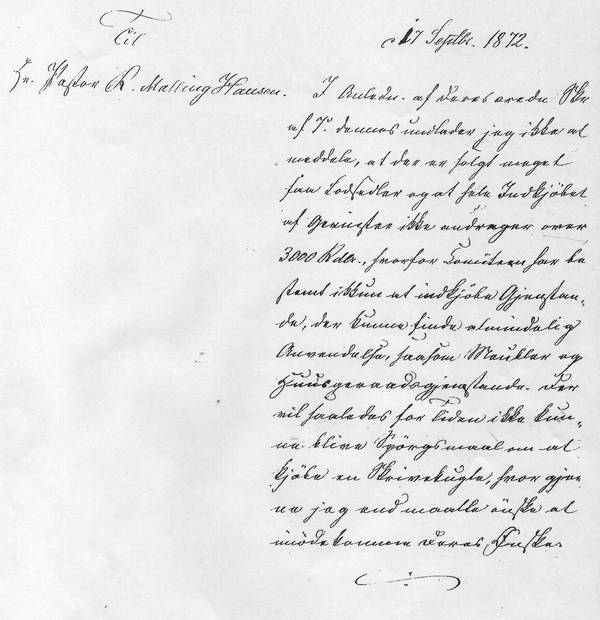 Til
17 Septbr. 1872.
Hr. Pastor R. Malling Hansen.
I Anledn. af Deres ærede Skr
af 7. dennes undlader jeg ikke at
meddele, at der er solgt meget
faa Lodsedler og at hele Indkjøbet
af Gevinster ikke andrager over
3000 Rdlr., hvorfor Comiteen har be
stemt ikkun at indkjøbe Gjenstan-
de, der kunne finde almindelig
Anvendelse, saasom Meubler og
Huusgeraadsgjenstande. Der
vil saaledes for Tiden ikke kun-
ne blive Spörgsmaal om at
kjöbe en Skrivekugle, hvor gjer
ne jeg end maatte önske at
imödekomme Deres Önske.